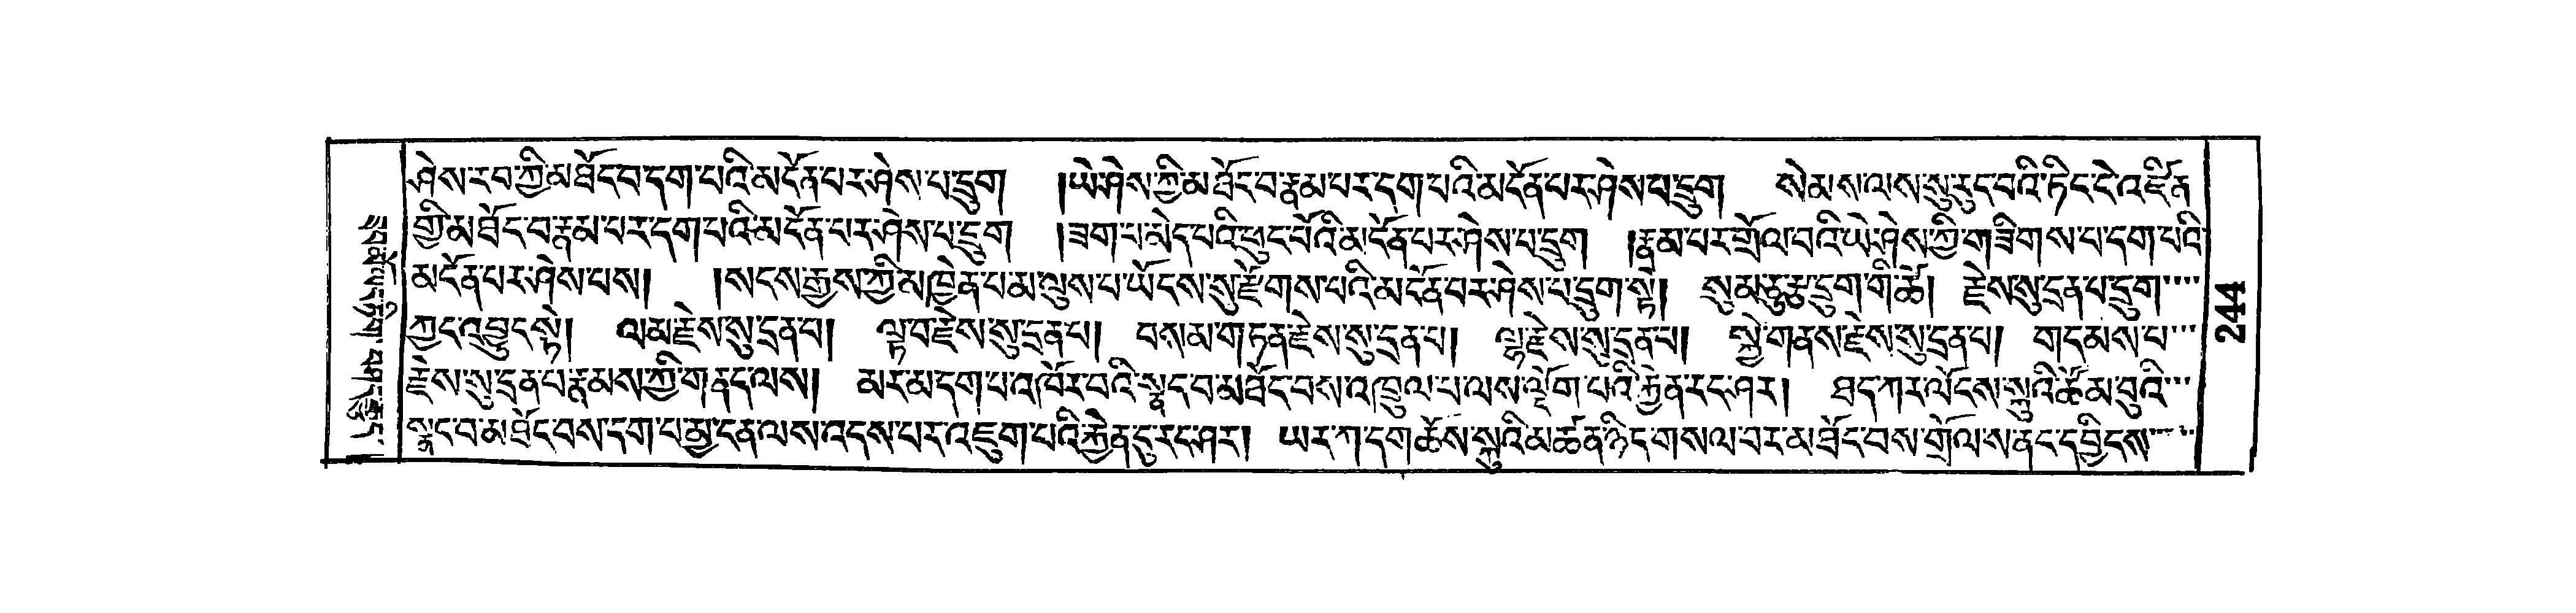 ཤེས་རབ་ཀྱི་མཐོང་བ་དག་པའི་མངོན་པར་ཤེས་པ་དྲུག །ཡེ་ཤེས་ཀྱི་མཐོང་བ་རྣམ་པར་དག་པའི་མངོན་པར་ཤེས་པ་དྲུག སེམས་ལས་སུ་རུང་བའི་ཏིང་ངེ་འཛིན་
གྱི་མཐོང་བ་རྣམ་པར་དག་པའི་མངོན་པར་ཤེས་པ་དྲུག །ཟག་པ་མེད་པའི་ཕུང་པོའི་མངོན་པར་ཤེས་པ་དྲུག །རྣམ་པར་གྲོལ་བའི་ཡེ་ཤེས་ཀྱི་གཟིགས་པ་དག་པའི་
མངོན་པར་ཤེས་པས། །སངས་རྒྱས་ཀྱི་མཁྱེན་པ་མ་ལུས་པ་ཡོངས་སུ་རྫོགས་པའི་མངོན་པར་ཤེས་པ་དྲུག་སྟེ། སུམ་ཅུ་རྩ་དྲུག་གི་ཚེ། རྗེས་སུ་དྲན་པ་དྲུག་
ཀྱང་འབྱུང་སྟེ། ལམ་རྗེས་སུ་དྲན་པ། ལྟ་བ་རྗེས་སུ་དྲན་པ། བསམ་གཏན་རྗེས་སུ་དྲན་པ། ལྷ་རྗེས་སུ་དྲན་པ། སྐྱེ་གནས་རྗེས་སུ་དྲན་པ། གདམས་པ་
རྗེས་སུ་དྲན་པ་རྣམས་ཀྱི་གནད་ལས། མར་མ་དག་པ་འཁོར་བའི་སྣང་བ་མཐོང་བས་འཁྲུལ་པ་ལས་ལྡོག་པའི་རྐྱེན་རང་ཤར། ཐད་ཀར་ལོངས་སྐུའི་ཚོམ་བུའི་
སྣང་བ་མཐོང་བས་དག་པ་མྱ་ངན་ལས་འདས་པར་འཇུག་པའི་རྐྱེན་དུ་རང་ཤར། ཡར་ཀ་དག་ཆོས་སྐུའི་མཚན་ཉིད་གསལ་བར་མཐོང་བས་གྲོལ་ས་ནང་དབྱིངས་